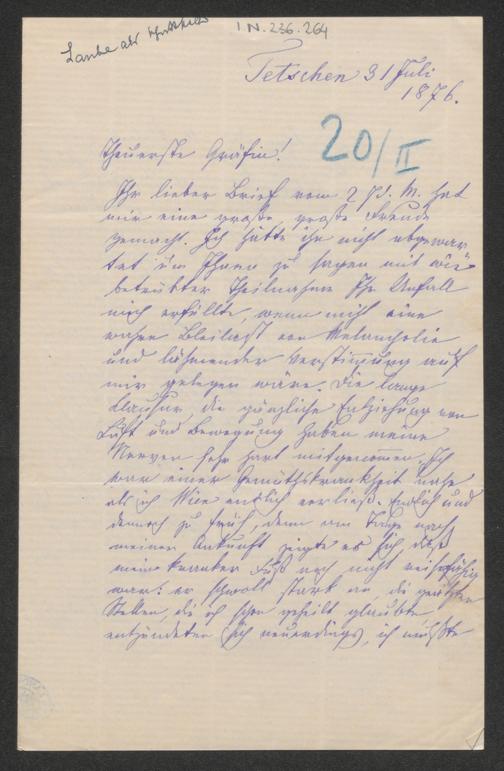 I.N. 236.264
Tetschen 31 Juli
1876.
20/II
Theuerste Gräfin!
Ihr lieber Brief vom 27 d. M. hat
mir eine große, große Freude
gemacht. Ich hätte ihn nicht abgewar
tet um Ihnen zu sagen mit wie
betrübter Theilnahme Ihr Unfall
mich erfüllte, wenn nicht eine
wahre Bleilast von Melancholie
und lähmender Verstimmung auf
mir gelegen wäre. Die lange
Klausur, die gänzliche Entziehung von
Luft und Bewegung haben meine
Nerven sehr hart mitgenommen. Ich
war einer Gemüthskrankheit nahe
als ich Wien endlich verließ. Endlich und
dennoch zu früh, denn am Tage nach
meiner Ankunft zeigte es sich, daß
mein kranker Fuß noch nicht reisefähig
war: er schwoll stark an, die
Stellen, die ich schon geheilt glaubte
entzündeten sich neuerdings, ich mußte